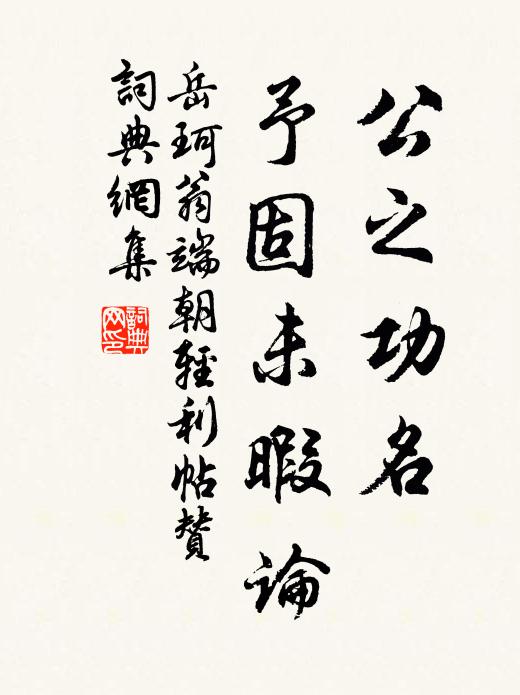 公之功名
予固未暇論
岳珂翁端朝輕利帖贊
詞典網集
詞典网印